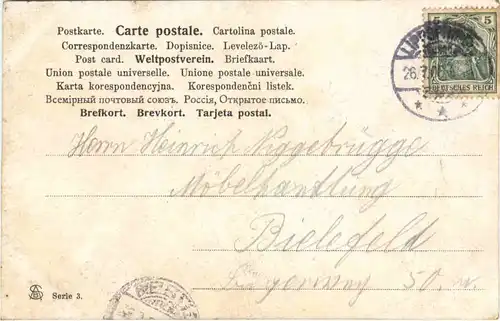 Postkarte. Carte postale. Cartolina postale.
Correspondenzkarte. Dopisnice. Levelező-Lap.
Post card. Weltpostverein. Briefkaart.
Union postale universelle. Unione postale universale.
Karta korespondencyjna. Korespondenční listek.
Всемірный почтовый союзъ. Россія, Открытое письмо.
Brefkort. Brevkort. Tarjeta postal.
5 5
DEUTSCHES REICH
26.7.
Herrn Heinrich Niggebrügge
Möbelhandlung
Bielefeld
50.
Serie 3.